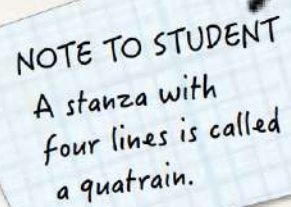 NOTE TO STUDENT
A stanza with
four lines is called
a quatrain.